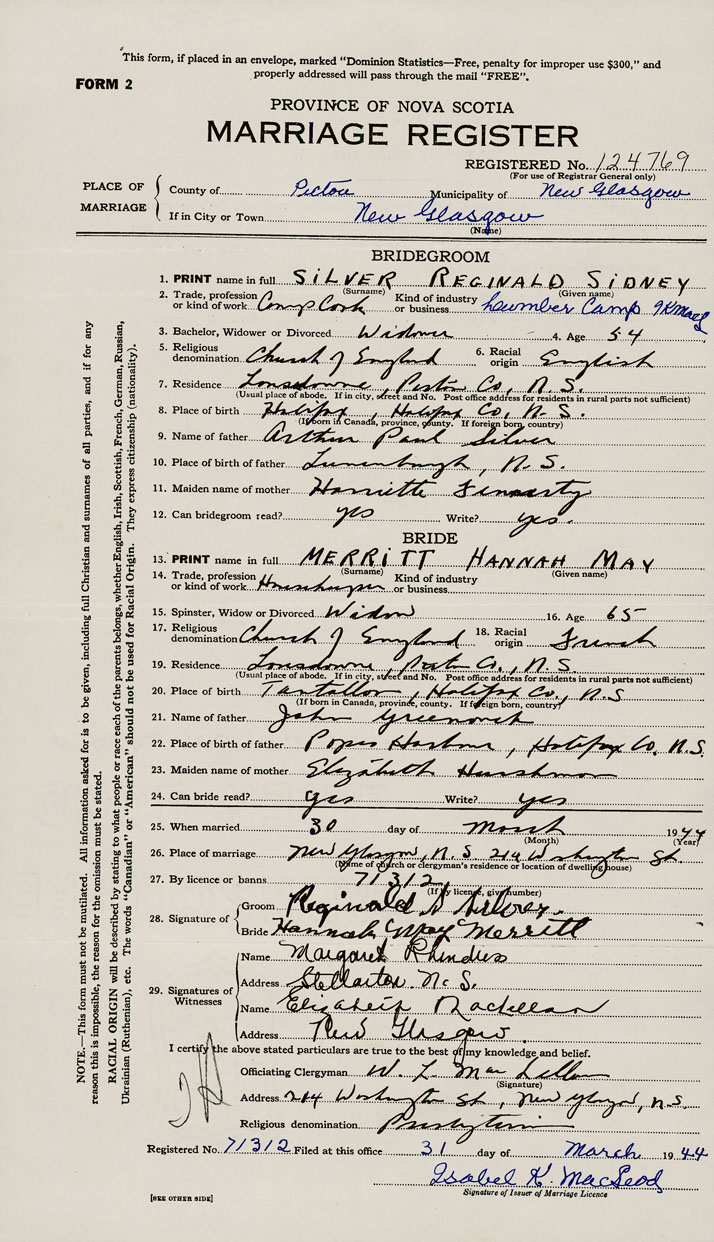 This form, if placed in an envelope, marked "Dominion Statistics—Free, penalty for improper use $300," and
properly addressed will pass through the mail "FREE".
FORM 2
PROVINCE OF NOVA SCOTIA
MARRIAGE REGISTER
REGISTERED No. 124769
(For use of Registrar General only)
PLACE OF MARRIAGE
County of Pictou Municipality of New Glasgow
If in City or Town New Glasgow
(Name)
BRIDEGROOM
1. PRINT name in full SILVER REGINALD SIDNEY
(Surname) (Given name)
2. Trade, profession or kind of work Camp Cook Kind of industry or business Lumber Camp
3. Bachelor, Widower or Divorced Widower 4. Age 54
5. Religious denomination Church of England 6. Racial origin English
7. Residence Lansdowne, Pictou Co, N.S.
(Usual place of abode. If in city, street and No. Post office address for residents in rural parts not sufficient)
8. Place of birth Halifax, Halifax Co, N.S.
(If born in Canada, province, county. If foreign born, country)
9. Name of father Arthur Paul Silver
10. Place of birth of father Lunenburgh, N.S.
11. Maiden name of mother Harriette
12. Can bridegroom read? yes Write? yes.
BRIDE
13. PRINT name in full MERRITT HANNAH MAY
(Surname) (Given name)
14. Trade, profession or kind of work Housekeeper Kind of industry or business
15. Spinster, Widow or Divorced Widow 16. Age 65
17. Religious denomination Church of England 18. Racial origin French
19. Residence Lansdowne, Pictou Co., N.S.
(Usual place of abode. If in city, street and No. Post office address for residents in rural parts not sufficient)
20. Place of birth Tantallon, Halifax Co., N.S
(If born in Canada, province, county. If foreign born, country)
21. Name of father John
22. Place of birth of father Popes Harbour, Halifax Co, N.S.
23. Maiden name of mother Elizabeth
24. Can bride read? yes Write? yes
25. When married 30 day of March 1944
(Month) (Year)
26. Place of marriage New Glasgow, N.S 214 Washington St.
(Name of church or clergyman's residence or location of dwelling house)
27. By licence or banns 71312
(If by licence, give number)
28. Signature of
Groom Reginald S Silver.
Bride Hannah May Merritt
29. Signatures of Witnesses
Name Margaret
Address Stellarton N.S.
Name Elizabeth MacLellan
Address New Glasgow.
I certify the above stated particulars are true to the best of my knowledge and belief.
Officiating Clergyman W. L. MacLellan
(Signature)
Address 214 Washington St, New Glasgow, N.S.
Religious denomination Presbyterian
Registered No. 71312 Filed at this office 31 day of March 1944
Isabel K. MacLeod
Signature of Issuer of Marriage Licence
[SEE OTHER SIDE]
NOTE.—This form must not be mutilated. All information asked for is to be given, including full Christian and surnames of all parties, and if for any
reason this is impossible, the reason for the omission must be stated.
RACIAL ORIGIN will be described by stating to what people or race each of the parents belongs, whether English, Irish, Scottish, French, German, Russian,
Ukrainian (Ruthenian), etc. The words "Canadian" or "American" should not be used for Racial Origin. They express citizenship (nationality).